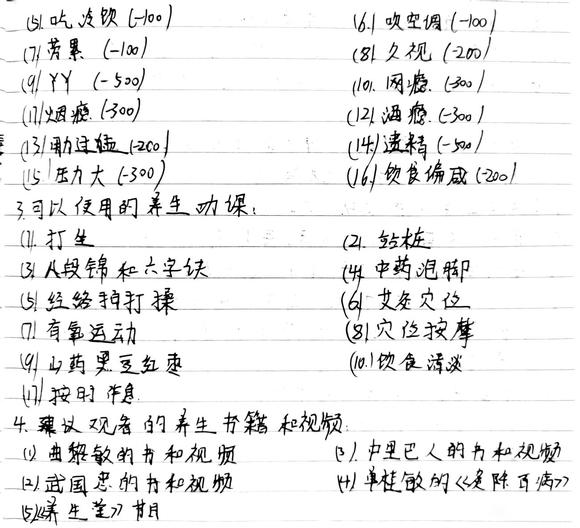 (5) 吃冷饮 (-100) (6) 吹空调 (-100)
(7) 劳累 (-100) (8) 久视 (-200)
(9) YY (-500) (10) 网瘾 (-300)
(11) 烟瘾 (-300) (12) 酒瘾 (-300)
(13) 勤过细 (-200) (14) 遗精 (-500)
(15) 压力大 (-300) (16) 饮食偏咸 (-200)
3.可以使用的养生功课:
(1) 打坐 (2) 站桩
(3) 八段锦和六字诀 (4) 中药泡脚
(5) 经络拍打操 (6) 艾灸穴位
(7) 有氧运动 (8) 穴位按摩
(9) 山药黑豆红枣 (10) 饮食清淡
(11) 按时作息
4.建议观看的养生书籍和视频:
(1) 曲黎敏的书和视频 (3) 中里巴人的书和视频
(2) 武国忠的书和视频 (4) 单桂敏的《灸除百病》
(5)《养生堂》节目